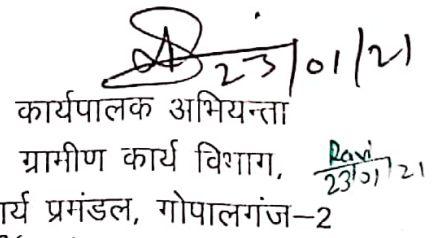 23/01/21
कार्यपालक अभियन्ता
ग्रामीण कार्य विभाग,
Ravi
23/01/21
र्य प्रमंडल, गोपालगंज-2